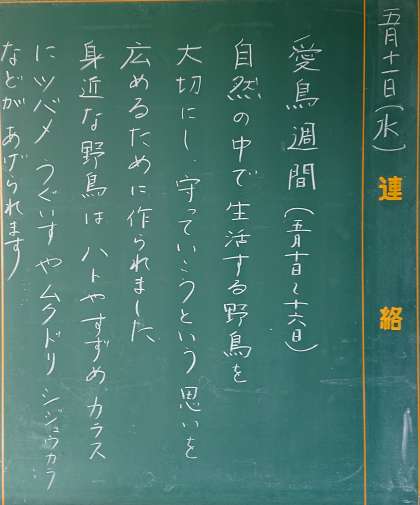 五月十一日(水)
連絡
愛鳥週間(五月十日~十六日)
自然の中で生活する野鳥を
大切にし、守っていこうという思いを
広めるために作られました。
身近な野鳥は、ハトやすずめ、カラス
にツバメ、うぐいすやムクドリ、シジュウカラ
などがあげられます。